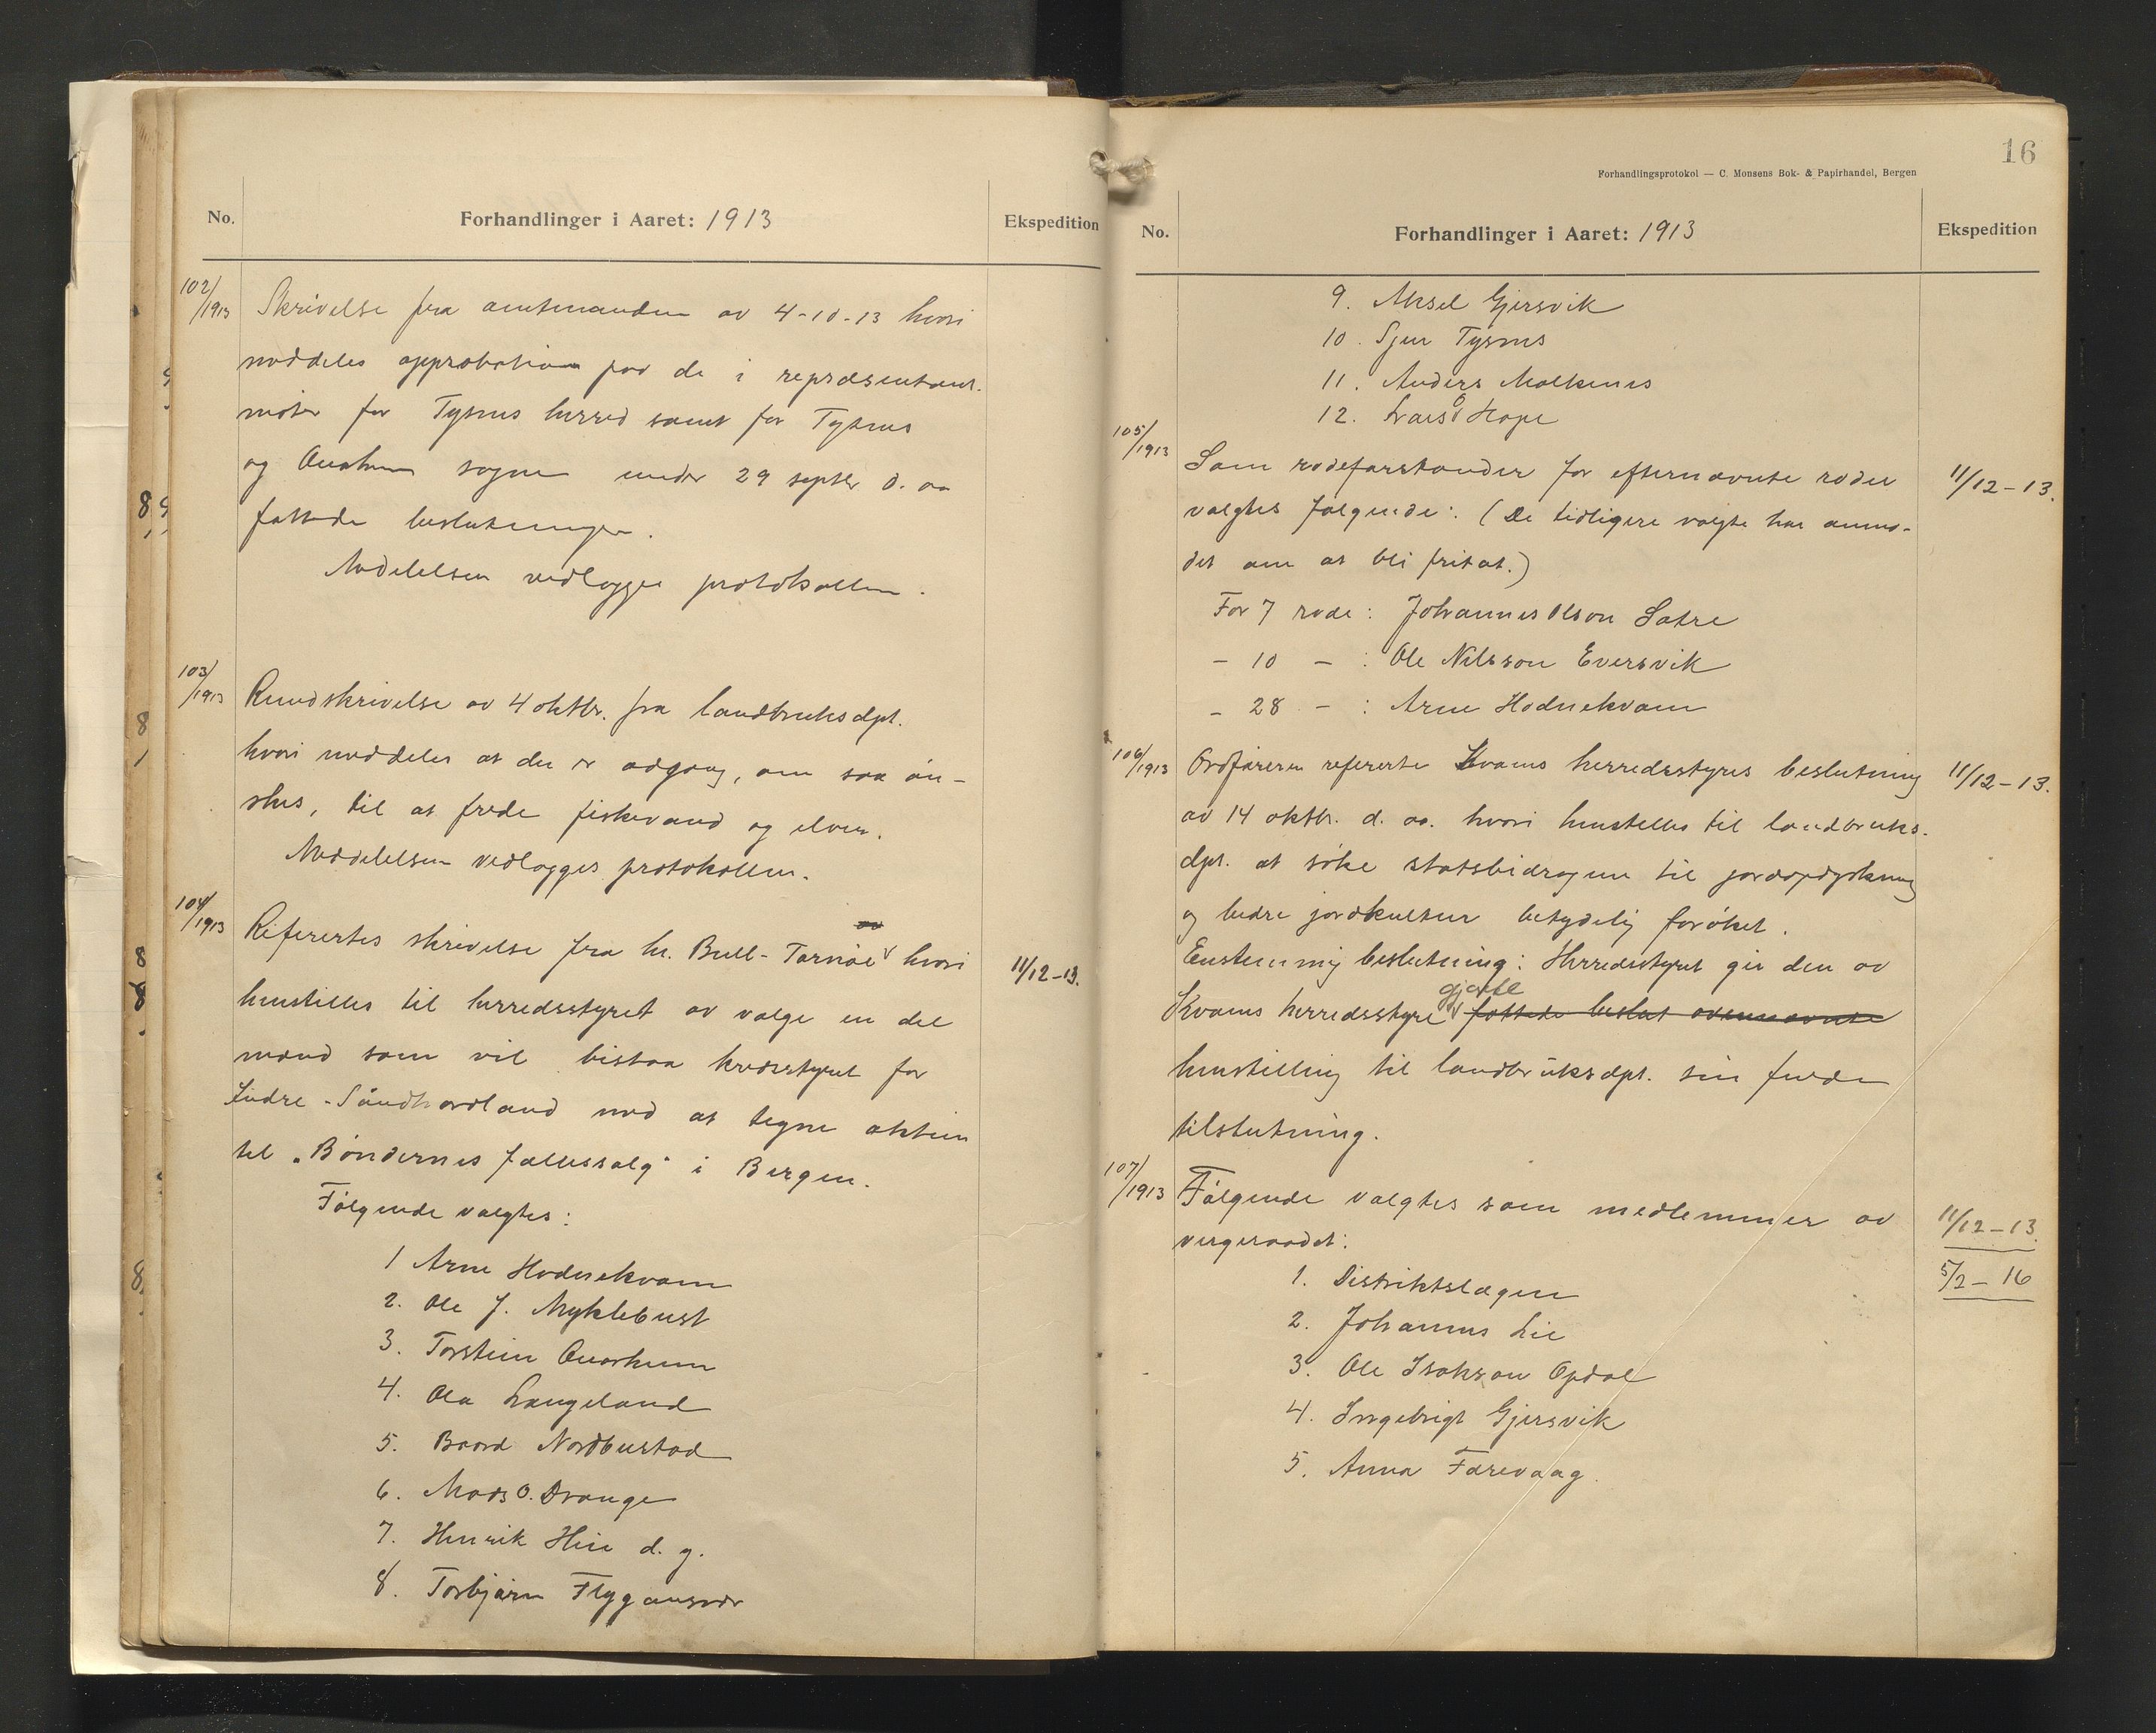 No. Forhandlinger i Aaret: 1913 Ekspedition
102/1913 Skrivelse fra amtmanden av 4-10-13 hvori
meddeles approbation paa de i repræsentant-
møter for Tysnes herred samt for Tysnes
og Onarheim sogne under 29 septbr d. aa
fattede beslutninger.
Meddelelsen vedlægges protokollen.
103/1913 Rundskrivelse av 4 oktbr. fra landbruksdpt.
hvori meddeles at der er adgang, om saa øn-
skes, til at frede fiskevand og elver.
Meddelelsen vedlægges protokollen.
104/1913 Refertes skrivelse fra hr. Bull-Tornøe hvori 11/12-13.
henstilles til herredsstyret av vælge en del
mænd som vil bistaa kredsstyret for
Indre-Søndhordland med at tegne aktier
til "Bøndernes fællessalg" i Bergen.
Følgende valgtes:
1 Arne Hodnekvam
2. Ole J. Myklebust
3. Torstein Onarheim
4. Ola Langeland
5. Baard Nordbustad
6. Mads O. Drange
7. Henrik Heie d. y.
8. Torbjørn Flygansvær
16
Forhandlingsprotokol — C. Monsens Bok- & Papirhandel, Bergen
No. Forhandlinger i Aaret: 1913 Ekspedition
9. Aksel Gjersvik
10. Sjur Tysnes
11. Anders Malkenes
12. Lars O Hope
105/1913 Som rodeforstander for efternævnte roder 11/12-13.
valgtes følgende: (De tidligere valgte har anmo-
det om at bli fritat.)
For 7 rode: Johannes Olson Sætre
- 10 - : Ole Nilsson Eversvik
- 28 - : Arne Hodnekvam
106/1913 Ordføreren refererte Kvams herredsstyres beslutning 11/12-13.
av 14 oktbr. d. aa. hvori henstilles til landbruks-
dpt. at søke statsbidragene til jordopdyrkning
og bedre jordkultur betydelig forøket.
Enstemmig beslutning: Herredsstyret gir den av
Kvams herredsstyre gjorte fattede beslut ovennævnte
henstilling til landbruksdpt. sin fulde
tilslutning.
107/1913 Følgende valgtes som medlemmer av 11/12-13.
vergeraadet: 5/2-16
1. Distriktslægen
2. Johannes Lie
3. Ole Isakson Opdal
4. Ingebrigt Gjersvik
5. Anna Færevaag.